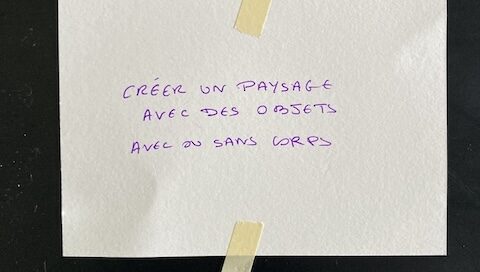 CRÉER UN PAYSAGE
AVEC DES OBJETS
AVEC OU SANS CORPS